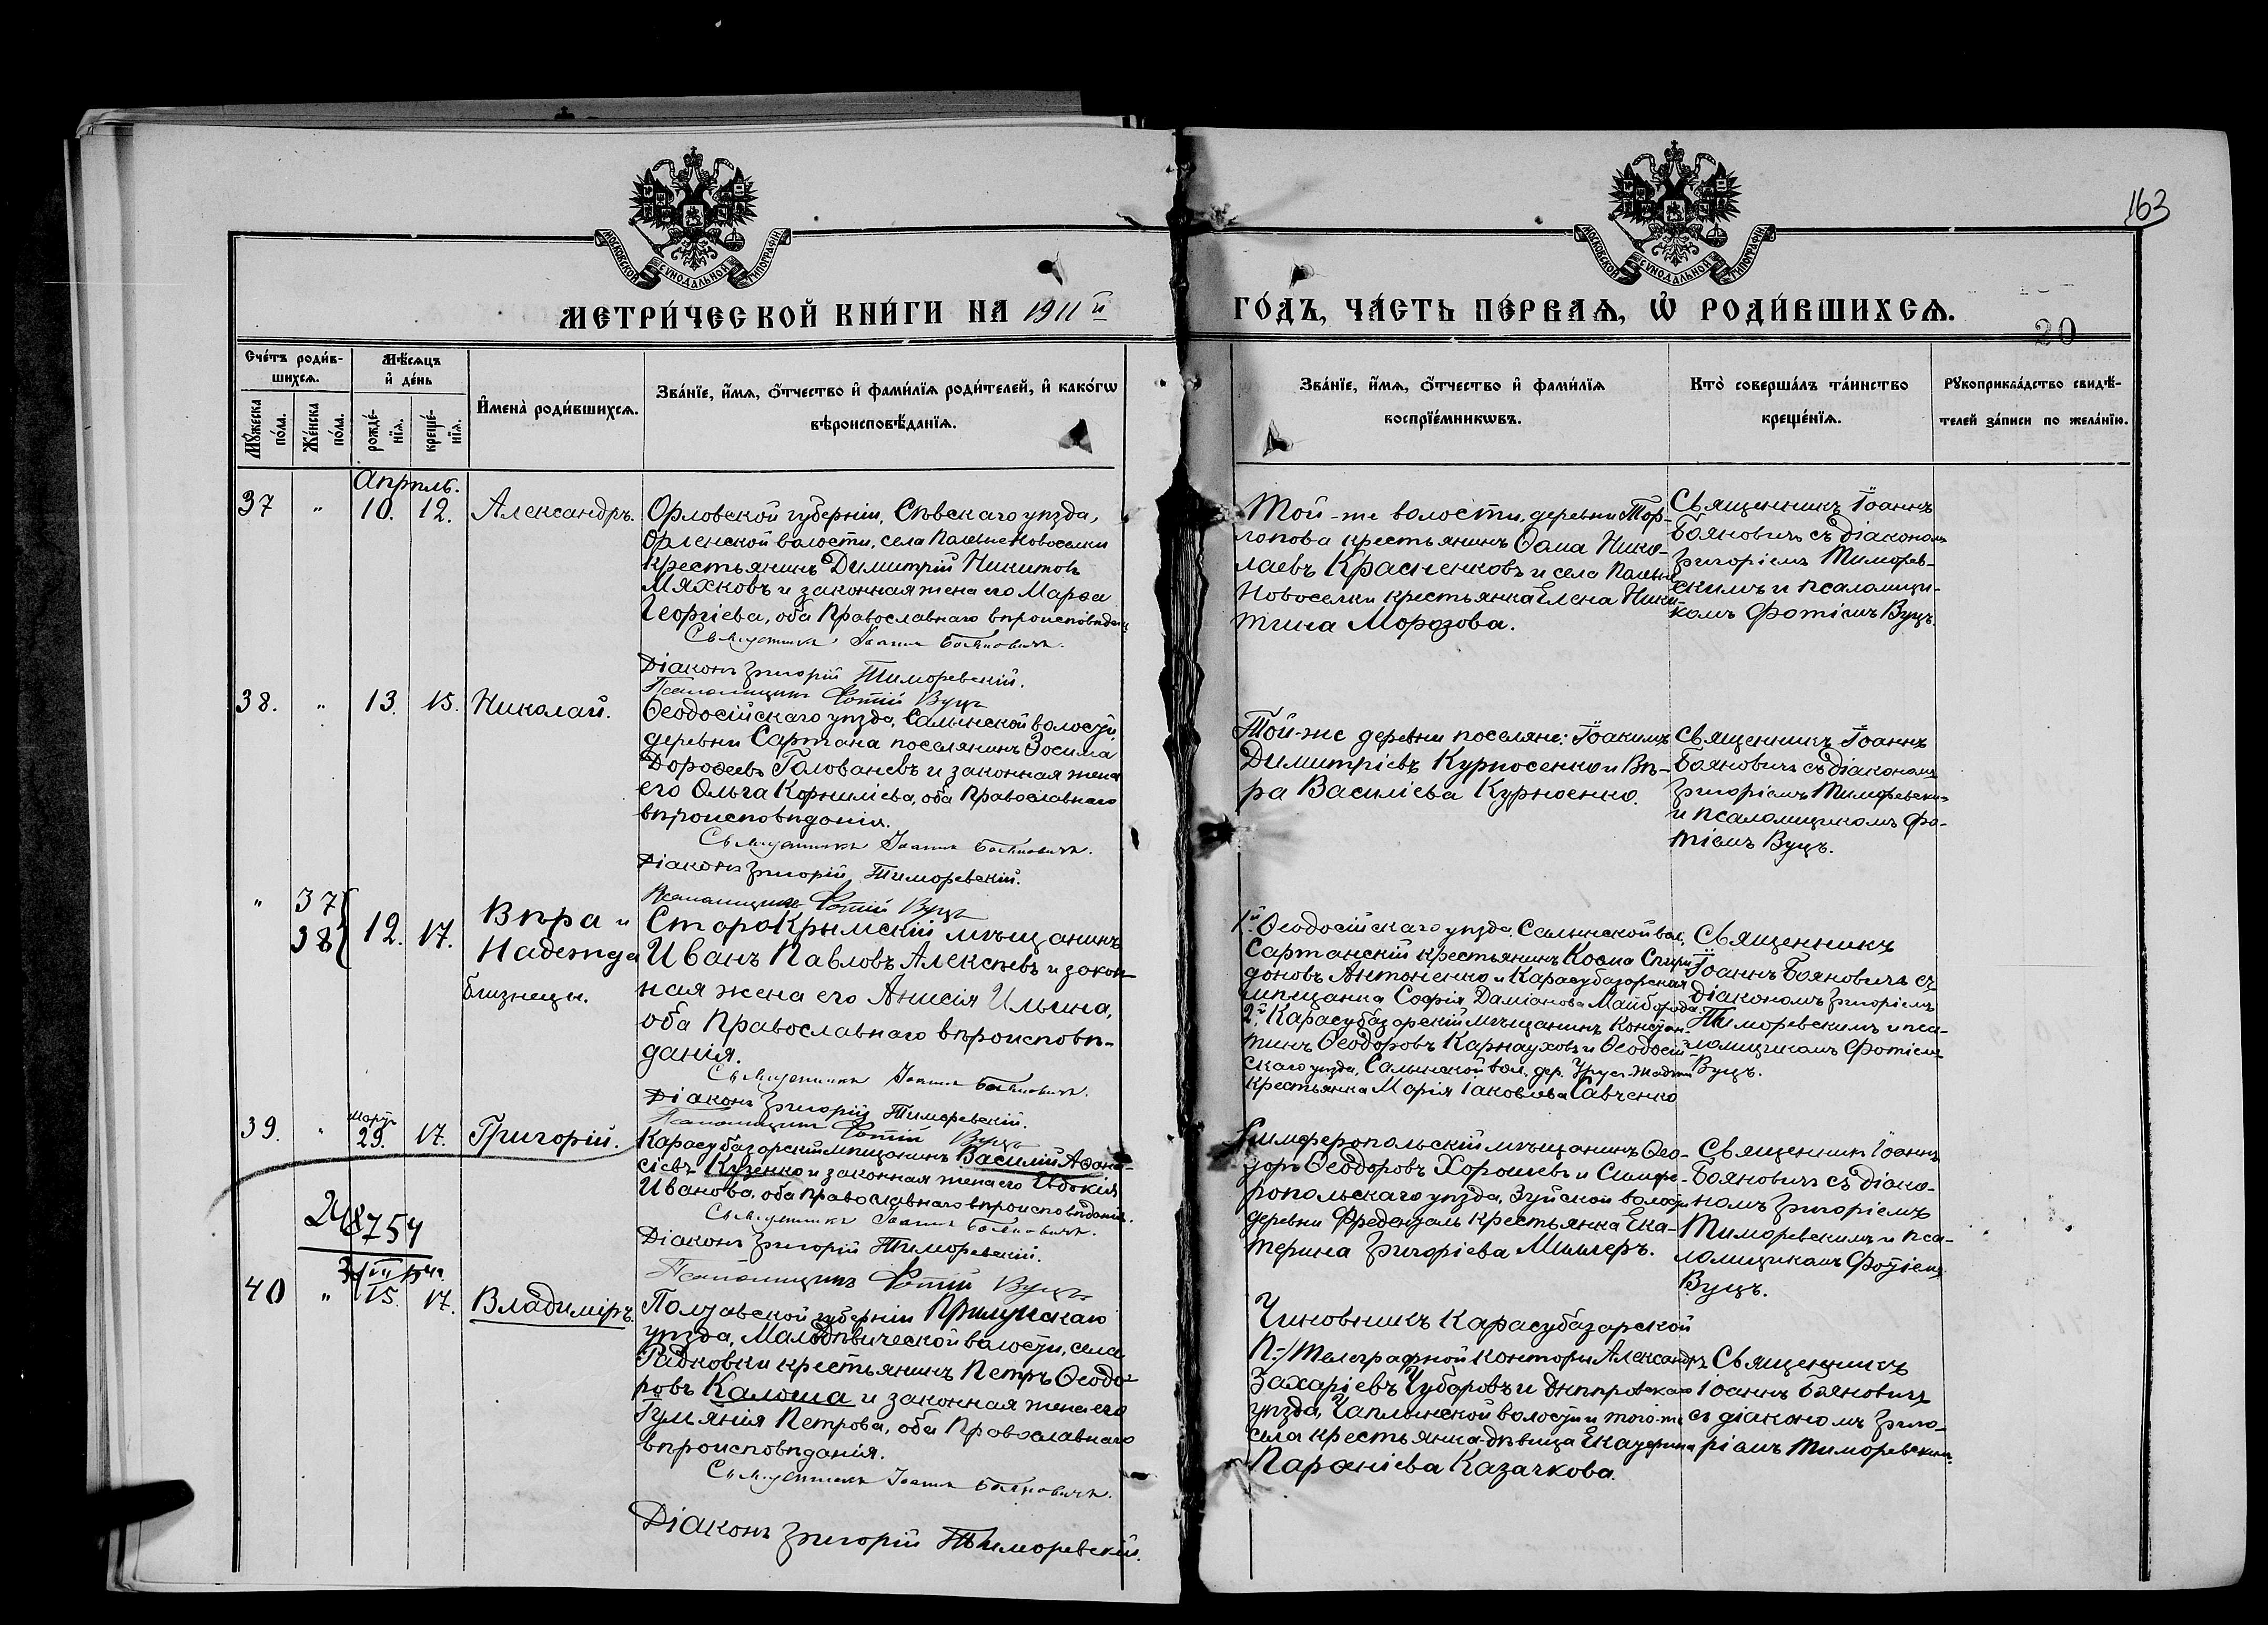 163
МОСКОВСКОЙ СѴНОДАЛЬНОЙ ТИПОГРАФІИ
МОСКОВСКОЙ СѴНОДАЛЬНОЙ ТИПОГРАФІИ
МЕТРИ́ЧЕСКОЙ КНИ́ГИ НА 1911 й
ГО́ДЪ, ЧА́СТЬ ПЕ́РВАѦ, Ѽ РОДИ́ВШИХСѦ.
20
Сче́тъ роди́в-
шихсѧ.
Мѣ́сѧцъ
и҆ де́нь
Мꙋ́жеска
по́ла.
Же́нска
по́ла.
рожде́-
нїѧ.
креще́-
нїѧ.
И҆мена̀ роди́вшихсѧ.
Зва́нїе, и҆́мѧ, ѻ҆́тчество и҆ фами́лїѧ роди́телей, и҆ како́гѡ
вѣроисповѣ́данїѧ.
Зва́нїе, и҆́мѧ, ѻ҆́тчество и҆ фами́лїѧ
воспрїе́мникѡвъ.
Кто̀ соверша́лъ та́инство
креще́нїѧ.
Рꙋкоприкла́дство свидѣ́-
телей за́писи по жела́нїю.
Апрѣль.
37 " 10. 12. Александръ.
Орловской губерніи, Сѣвскаго уѣзда,
волости, села Новоселки
крестьянинъ Димитрій Никитовъ
Мяхковъ и законная жена его Марѳа
Георгіева, оба Православнаго вѣроисповѣдан.
Священникъ Іоаннъ Бояновичъ.
Діаконъ Григорій Тиморевскій.
Псаломщикъ Фотій Вуцъ
Той-же волости, деревни Тор-
лопова крестьянинъ Ѳома Нико-
лаевъ Красненковъ и села
Новоселки крестьянка Елена Ники-
тина Морозова.
Священникъ Іоаннъ
Бояновичъ съ діакономъ
Григоріемъ Тиморев-
скимъ и псаломщи-
комъ Фотіемъ Вуцъ.
38. " 13. 15. Николай.
Ѳеодосійскаго уѣзда, Салынской волости,
деревни Сартана поселянинъ Зосима
Дороѳеевъ Голованевъ и законная жена
его Ольга Корниліева, оба Православнаго
вѣроисповѣданія.
Священникъ Іоаннъ Бояновичъ.
Діаконъ Григорій Тиморевскій.
Псаломщикъ Фотій Вуцъ
Той-же деревни поселяне: Іоакимъ
Димитріевъ Курносенко и Вѣ-
ра Василіева Курносенко.
Священникъ Іоаннъ
Бояновичъ съ діакономъ
Григоріемъ Тиморевски-
и псаломщикомъ Фо-
тіемъ Вуцъ.
" 37
38 12. 17. Вѣра и
Надежда
близнецы.
СтароКрымскій мѣщанинъ
Иванъ Павловъ Алексѣевъ и закон-
ная жена его Анисія Ильина,
оба Православнаго вѣроисповѣ-
данія.
Священникъ Іоаннъ Бояновичъ.
Діаконъ Григорій Тиморевскій.
Псаломщикъ Фотій Вуцъ
1й. Ѳеодосійскаго уѣзда, Салынской вол.,
Сартанскій крестьянинъ Косма Спири-
доновъ Антоненко и Карасубазарская
мѣщанка Софія Даміанова Майборода.
2й. Карасубазарскій мѣщанинъ Констан-
тинъ Ѳеодоровъ Карнауховъ и Ѳеодосій-
скаго уѣзда, Салынской вол., дер.
крестьянка Марія Іаковлева Савченко
Священникъ
Іоаннъ Бояновичъ съ
діакономъ Григоріемъ
Тиморевскимъ и пса-
ломщикомъ Фотіемъ
Вуцъ.
39. " Мартъ 29. 17. Григорій.
Карасубазарскій мѣщанинъ Василій Аѳона-
сіевъ Кузенко и законная жена его Евдокія
Иванова, оба Православнаго вѣроисповѣданія.
Священникъ Іоаннъ Бояновичъ.
Діаконъ Григорій Тиморевскій.
Псаломщикъ Фотій Вуцъ
Симферопольскій мѣщанинъ Ѳео-
доръ Ѳеодоровъ Хорошевъ и Симфе-
ропольскаго уѣзда, Зуйской волости
деревни Фреденталь крестьянка Ека-
терина Григоріева Миллеръ.
Священникъ Іоаннъ
Бояновичъ съ діако-
номъ Григоріемъ
Тиморевскимъ и пса-
ломщикомъ Фотіемъ
Вуцъ.
40 " 15. 17. Владиміръ.
Полтавской губерніи Прилукскаго
уѣзда, Малодѣвической волости, села
Радковки крестьянинъ Петръ Ѳеодо-
ровъ Калоша и законная жена его
Гуліянія Петрова, оба Православнаго
вѣроисповѣданія.
Священникъ Іоаннъ Бояновичъ.
Діаконъ Григорій Тиморевскій.
Чиновникъ Карасубазарской
П.-Телеграфной конторы Александръ
Захаріевъ Чубаровъ и Днѣпровскаго
уѣзда, Чаплынской волости и того-же
села крестьянка-дѣвица Екатерина
Казачкова.
Священникъ
Іоаннъ Бояновичъ
съ діакономъ Григо-
ріемъ Тиморевскимъ.